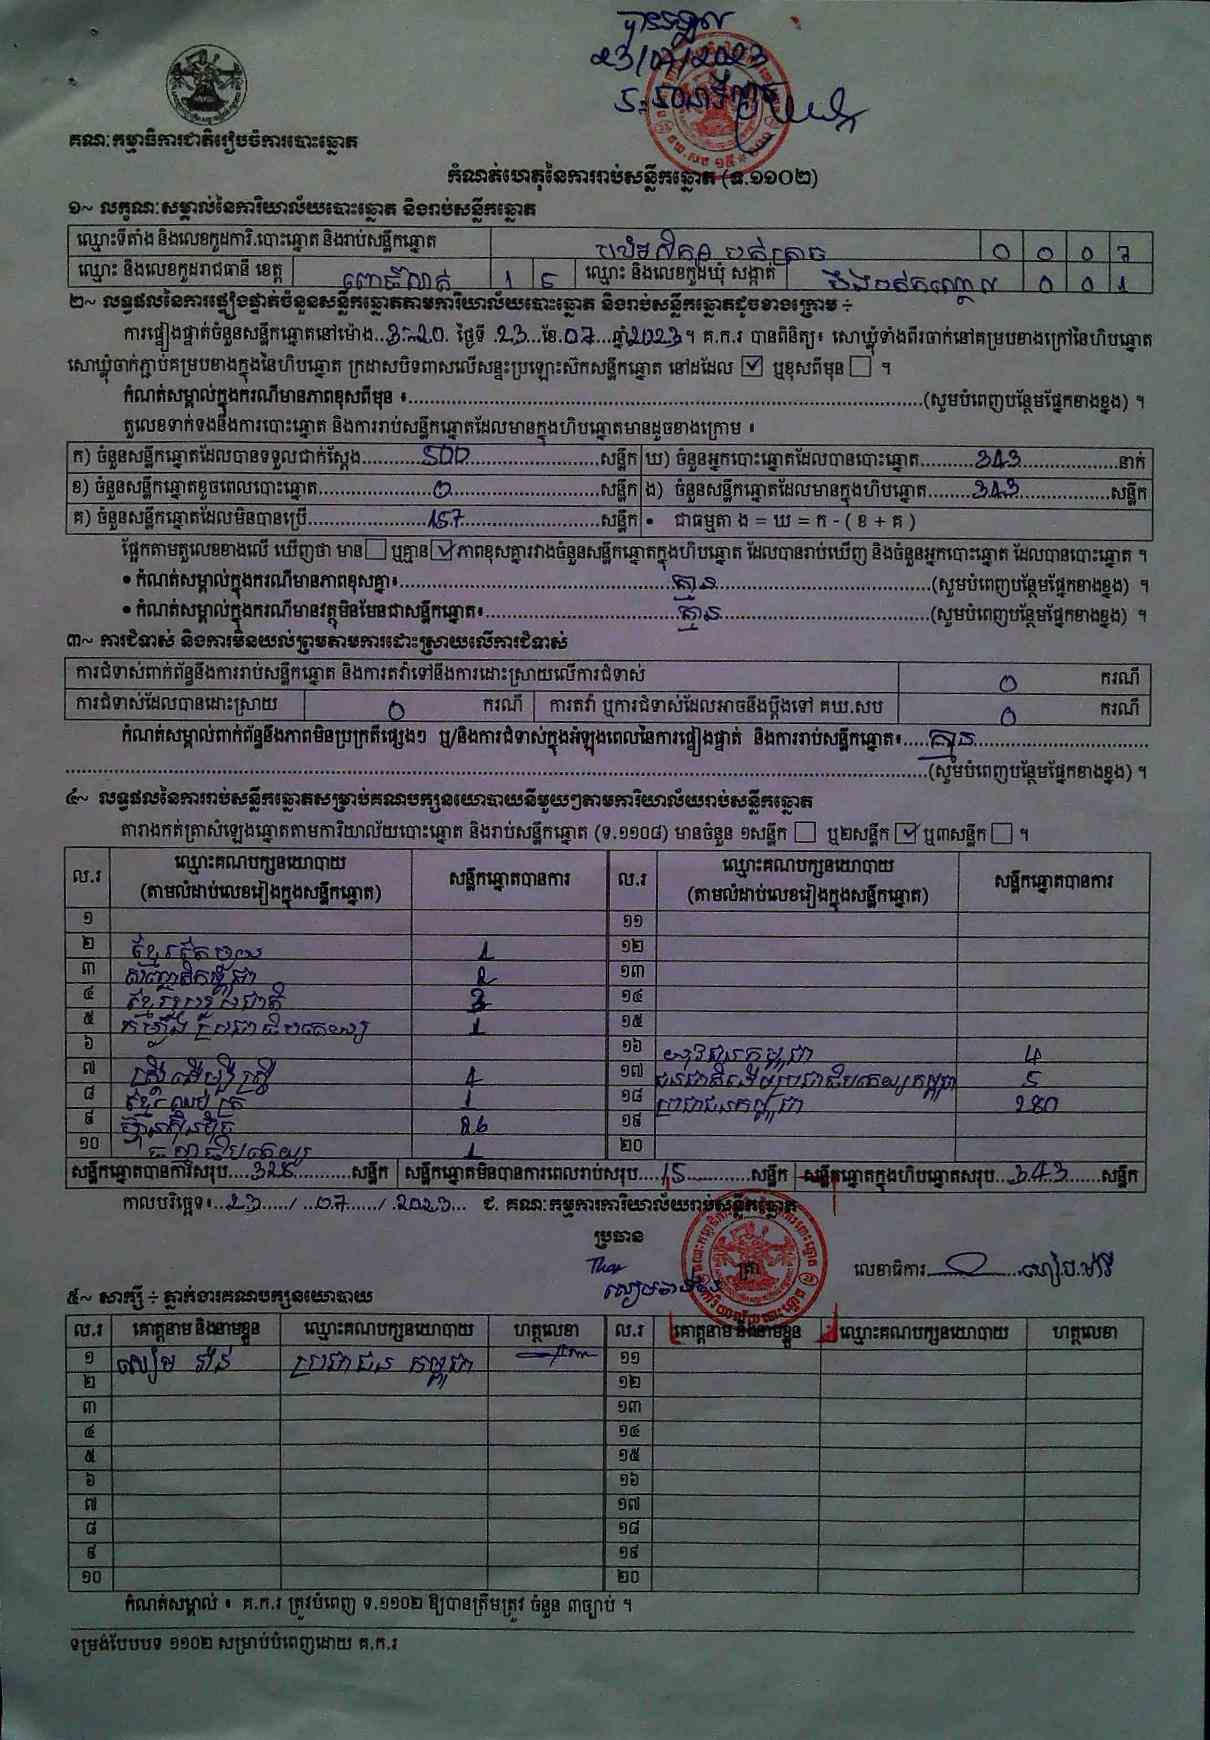 បានទទួល
23/07/2023
គណៈកម្មាធិការជាតិរៀបចំការបោះឆ្នោត
កំណត់ហេតុនៃការរាប់សន្លឹកឆ្នោត (ទ.១១០២)
១~ លក្ខណៈសម្គាល់នៃការិយាល័យបោះឆ្នោត និងរាប់សន្លឹកឆ្នោត
ឈ្មោះទីតាំង និងលេខកូដការិ.បោះឆ្នោត និងរាប់សន្លឹកឆ្នោត 0 0 0 7
ឈ្មោះ និងលេខកូដរាជធានី ខេត្ត ពោធិ៍សាត់ 1 5 ឈ្មោះ និងលេខកូដឃុំ សង្កាត់ 0 0 1
២~ លទ្ធផលនៃការផ្ទៀងផ្ទាត់ចំនួនសន្លឹកឆ្នោតតាមការិយាល័យបោះឆ្នោត និងរាប់សន្លឹកឆ្នោតដូចខាងក្រោម ÷
ការផ្ទៀងផ្ទាត់ចំនួនសន្លឹកឆ្នោតនៅម៉ោង...3:20. ថ្ងៃទី .23...ខែ.07...ឆ្នាំ2023។ គ.ក.រ បានពិនិត្យ៖ សោឃ្លុំទាំងពីរចាក់នៅគម្របខាងក្រៅនៃហិបឆ្នោត
សោឃ្លុំចាក់ភ្ជាប់គម្របខាងក្នុងនៃហិបឆ្នោត ក្រដាសបិទពាសលើសន្ទះប្រឡោះស៊កសន្លឹកឆ្នោត នៅដដែល ☑ ឬខុសពីមុន ☐ ។
កំណត់សម្គាល់ក្នុងករណីមានភាពខុសពីមុន ៖...(សូមបំពេញបន្ថែមផ្នែកខាងខ្នង) ។
តួលេខទាក់ទងនឹងការបោះឆ្នោត និងការរាប់សន្លឹកឆ្នោតដែលមានក្នុងហិបឆ្នោតមានដូចខាងក្រោម ៖
ក) ចំនួនសន្លឹកឆ្នោតដែលបានទទួលជាក់ស្តែង...500...សន្លឹក ឃ) ចំនួនអ្នកបោះឆ្នោតដែលបានបោះឆ្នោត...343...នាក់
ខ) ចំនួនសន្លឹកឆ្នោតខូចពេលបោះឆ្នោត...0...សន្លឹក ង) ចំនួនសន្លឹកឆ្នោតដែលមានក្នុងហិបឆ្នោត...343...សន្លឹក
គ) ចំនួនសន្លឹកឆ្នោតដែលមិនបានប្រើ...157...សន្លឹក • ជាធម្មតា ង = ឃ = ក - ( ខ + គ )
ផ្អែកតាមតួលេខខាងលើ ឃើញថា មាន ☐ ឬគ្មាន ☑ ភាពខុសគ្នារវាងចំនួនសន្លឹកឆ្នោតក្នុងហិបឆ្នោត ដែលបានរាប់ឃើញ និងចំនួនអ្នកបោះឆ្នោត ដែលបានបោះឆ្នោត ។
• កំណត់សម្គាល់ក្នុងករណីមានភាពខុសគ្នា៖...គ្មាន...(សូមបំពេញបន្ថែមផ្នែកខាងខ្នង) ។
• កំណត់សម្គាល់ក្នុងករណីមានវត្ថុមិនមែនជាសន្លឹកឆ្នោត៖...គ្មាន...(សូមបំពេញបន្ថែមផ្នែកខាងខ្នង) ។
៣~ ការជំទាស់ និងការមិនយល់ព្រមតាមការដោះស្រាយលើការជំទាស់
ការជំទាស់ពាក់ព័ន្ធនឹងការរាប់សន្លឹកឆ្នោត និងការតវ៉ាទៅនឹងការដោះស្រាយលើការជំទាស់ 0 ករណី
ការជំទាស់ដែលបានដោះស្រាយ 0 ករណី ការតវ៉ា ឬការជំទាស់ដែលអាចនឹងប្តឹងទៅ គឃ.សប 0 ករណី
កំណត់សម្គាល់ពាក់ព័ន្ធនឹងភាពមិនប្រក្រតីផ្សេងៗ ឬ/និងការជំទាស់ក្នុងអំឡុងពេលនៃការផ្ទៀងផ្ទាត់ និងការរាប់សន្លឹកឆ្នោត៖...គ្មាន...
...(សូមបំពេញបន្ថែមផ្នែកខាងខ្នង) ។
៤~ លទ្ធផលនៃការរាប់សន្លឹកឆ្នោតសម្រាប់គណបក្សនយោបាយនីមួយៗតាមការិយាល័យរាប់សន្លឹកឆ្នោត
តារាងកត់ត្រាសំឡេងឆ្នោតតាមការិយាល័យបោះឆ្នោត និងរាប់សន្លឹកឆ្នោត (ទ.១១០៨) មានចំនួន ១សន្លឹក ☐ ឬ២សន្លឹក ☑ ឬ៣សន្លឹក ☐ ។
ល.រ ឈ្មោះគណបក្សនយោបាយ (តាមលំដាប់លេខរៀងក្នុងសន្លឹកឆ្នោត) សន្លឹកឆ្នោតបានការ ល.រ ឈ្មោះគណបក្សនយោបាយ (តាមលំដាប់លេខរៀងក្នុងសន្លឹកឆ្នោត) សន្លឹកឆ្នោតបានការ
១ ១១
២ ខ្មែរតែមួយ 1 ១២
៣ សញ្ជាតិកម្ពុជា 2 ១៣
៤ ខ្មែររួបរួមជាតិ 3 ១៤
៥ កម្លាំងប្រជាធិបតេយ្យ 1 ១៥
៦ ១៦ យុវជនកម្ពុជា 4
៧ ស្ត្រីដើម្បីស្ត្រី ១៧ ជនជាតិដើមប្រជាធិបតេយ្យកម្ពុជា 5
៨ 1 ១៨ ប្រជាជនកម្ពុជា 280
៩ ហ៊្វុនស៊ិនប៉ិច 26 ១៩
១០ ធម្មាធិបតេយ្យ 1 ២០
សន្លឹកឆ្នោតបានការសរុប...328...សន្លឹក សន្លឹកឆ្នោតមិនបានការពេលរាប់សរុប...15...សន្លឹក សន្លឹកឆ្នោតក្នុងហិបឆ្នោតសរុប...343...សន្លឹក
កាលបរិច្ឆេទ៖..23.../...07.../.2023... ជ. គណៈកម្មការការិយាល័យរាប់សន្លឹកឆ្នោត
ប្រធាន
លេខាធិការ
៥~ សាក្សី ÷ ភ្នាក់ងារគណបក្សនយោបាយ
ល.រ គោត្តនាម និងនាមខ្លួន ឈ្មោះគណបក្សនយោបាយ ហត្ថលេខា ល.រ គោត្តនាម និងនាមខ្លួន ឈ្មោះគណបក្សនយោបាយ ហត្ថលេខា
១ ប្រជាជនកម្ពុជា ១១
២ ១២
៣ ១៣
៤ ១៤
៥ ១៥
៦ ១៦
៧ ១៧
៨ ១៨
៩ ១៩
១០ ២០
កំណត់សម្គាល់ ៖ គ.ក.រ ត្រូវបំពេញ ទ.១១០២ ឱ្យបានត្រឹមត្រូវ ចំនួន ៣ច្បាប់ ។
ទម្រង់បែបបទ ១១០២ សម្រាប់បំពេញដោយ គ.ក.រ